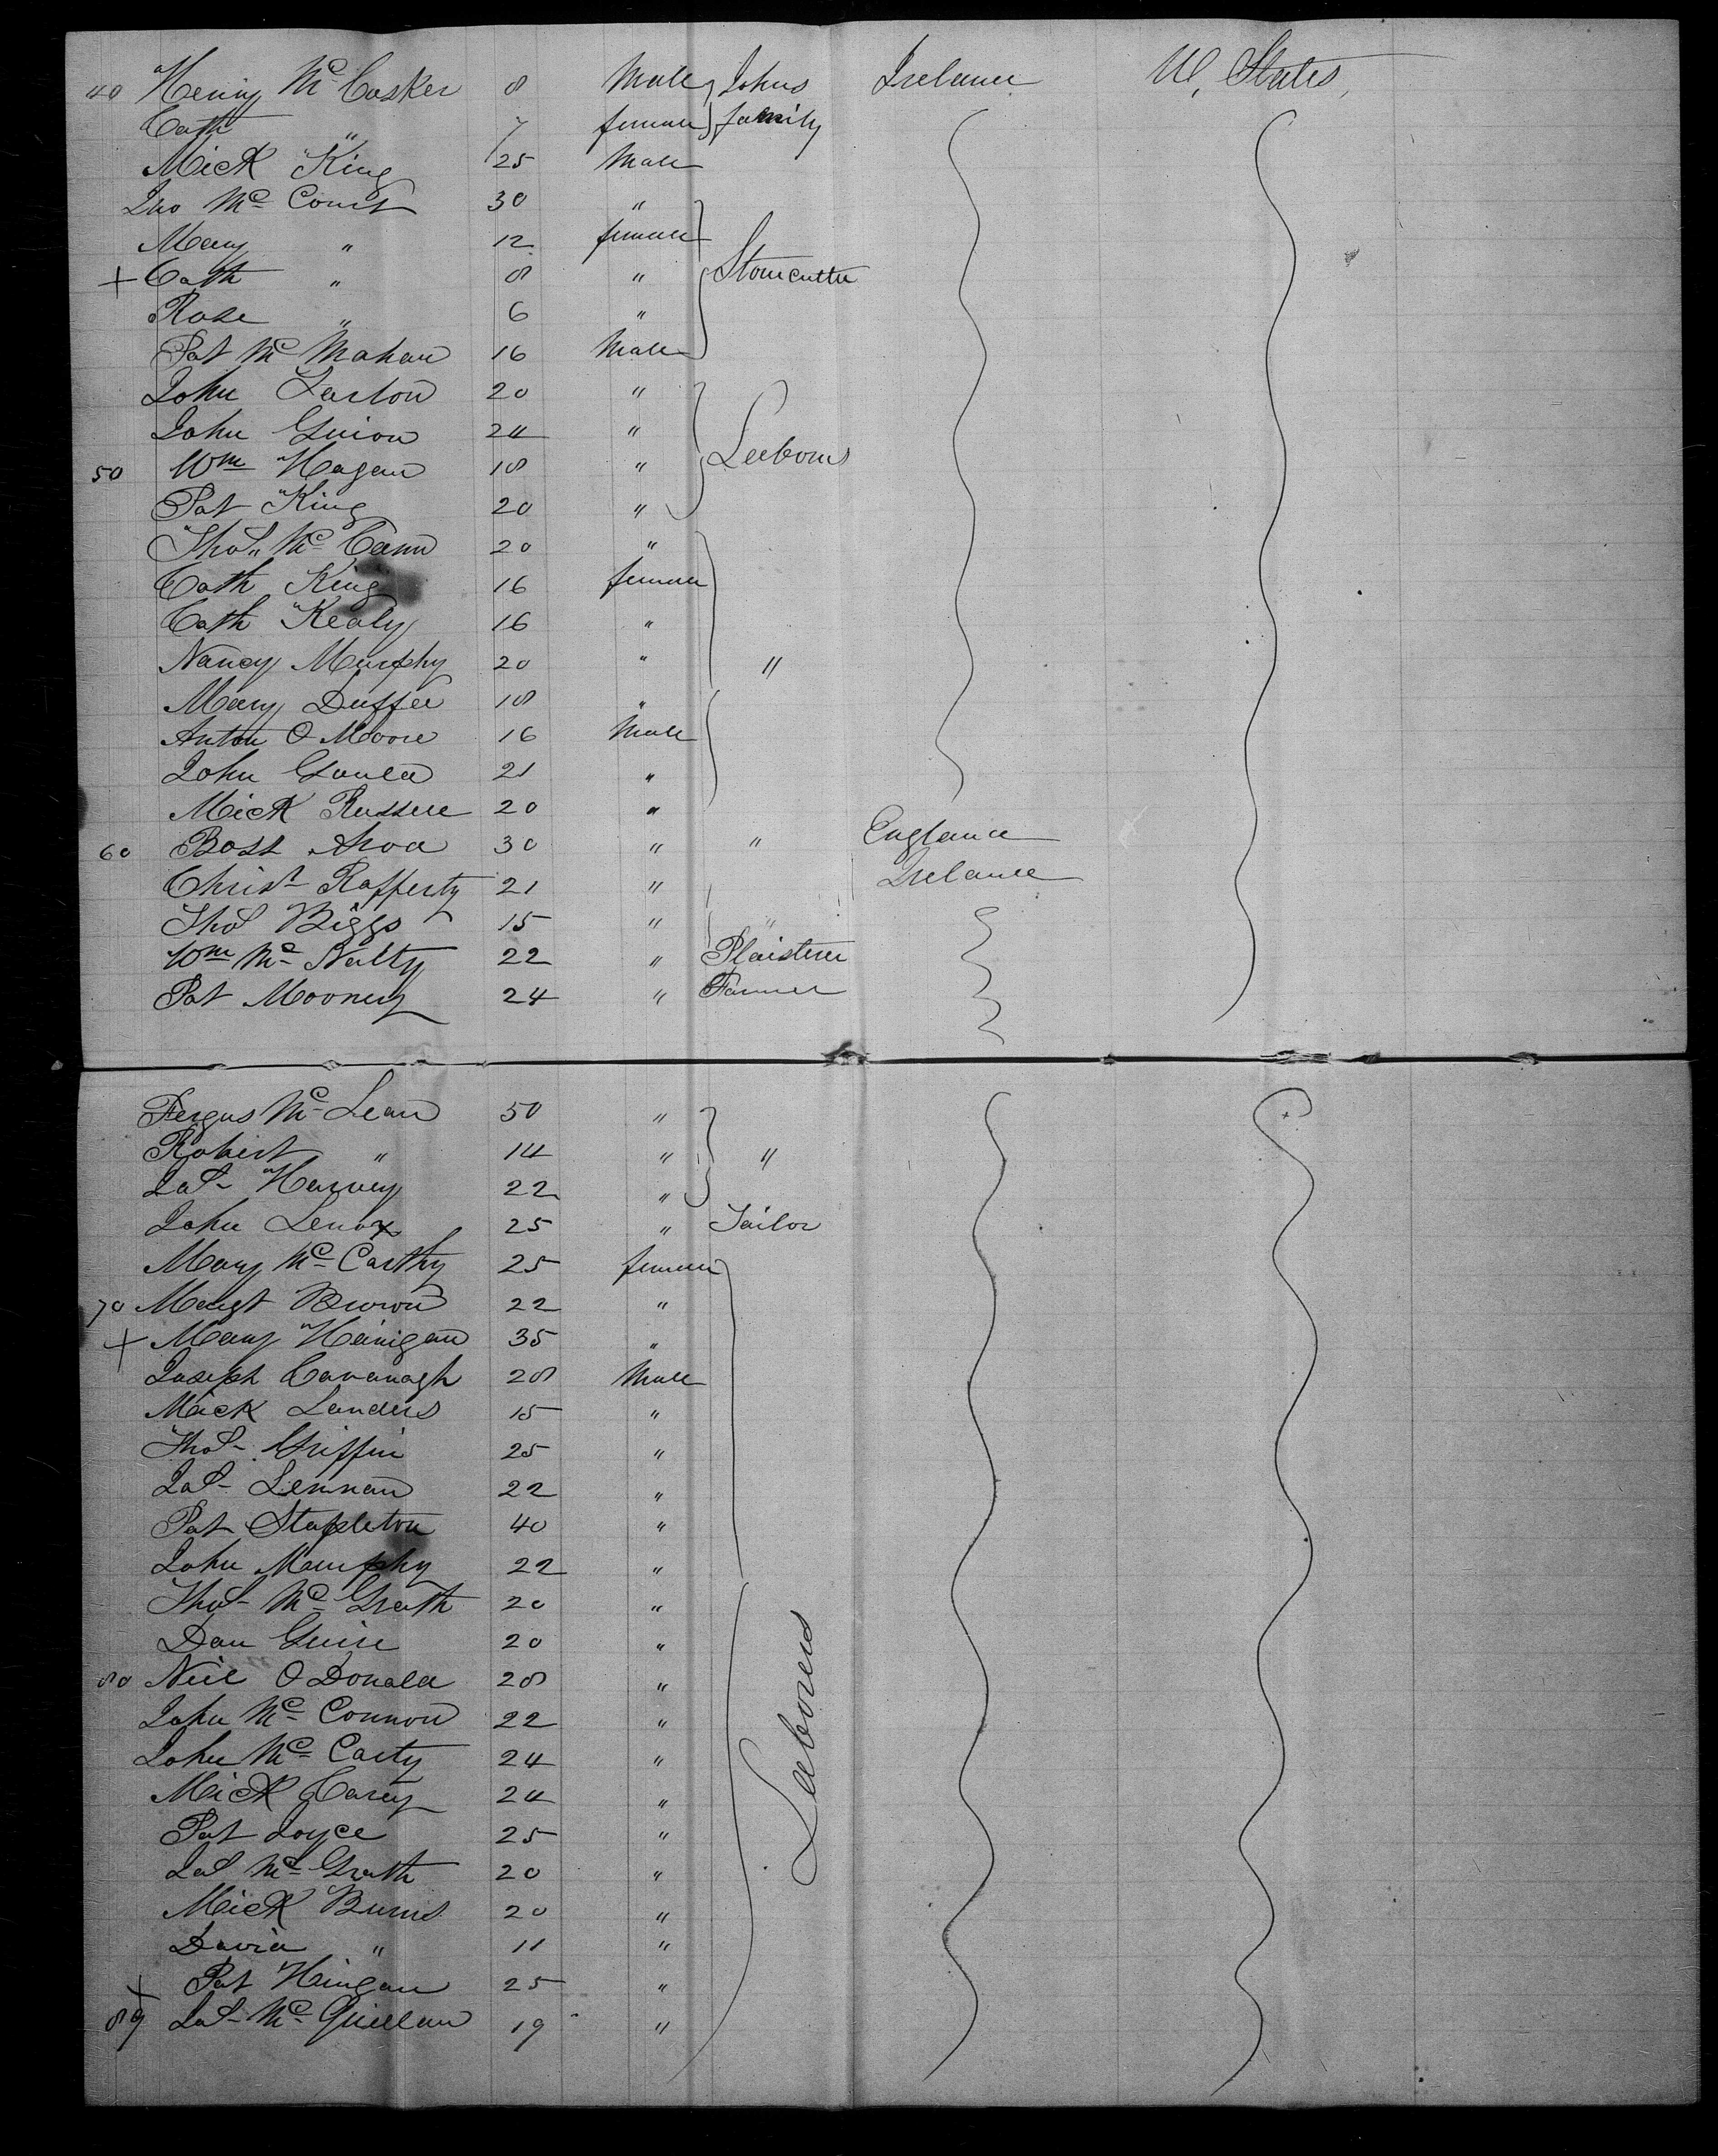 40 Henry Mc Cosker 8 Male Johns Ireland U, States,
Cath " 7 female family
Mick King 25 Male
Jno Mc Court 30 "
Mary " 12 female
+ Cath " 8 " Stonecutter
Rose " 6 "
Pat Mc Mahan 16 Male
John Larton 20 "
John Guion 24 "
50 Wm Hagan 18 " Labours
Pat King 20 "
Thos Mc Cann 20 "
Cath King 16 female
Cath Kealy 16 "
Nancy Murphy 20 " "
Mary Duffee 18 "
Anton O Moore 16 Male
John Gould 21 "
Mick Russell 20 "
60 30 " " England
Christ Rafferty 21 " Ireland
Thos Biggs 15 " "
Wm Mc Nalty 22 " Plaisterer
Pat Mooney 24 " Farmer
Fergus Mc Lean 50 "
Robert " 14 " "
Jas Harvey 22 "
John Lenox 25 " Tailor
Mary Mc Carthy 25 female
70 Margt Brown 22 "
+ Mary Hanigan 35 "
Joseph Cavanagh 28 Male
Mick Landers 15 "
Thos Griffin 25 "
Jas Lennan 22 "
Pat Stapleton 40 "
John Murphy 22 "
Thos Mc Grath 20 "
Dan Guire 20 "
80 Neil O Donald 28 "
John Mc Connon 22 " Labourers
John Mc Carty 24 "
Mick Carey 24 "
Pat Joyce 25 "
Jas Mc Grath 20 "
Mick Burns 20 "
David " 11 "
+ Pat 25 "
89 Jas Mc Quillan 19 "